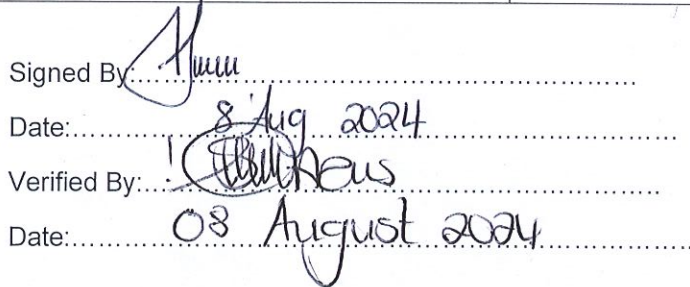 Signed By:
Date: 8 Aug 2024
Verified By:
Date: 08 August 2024